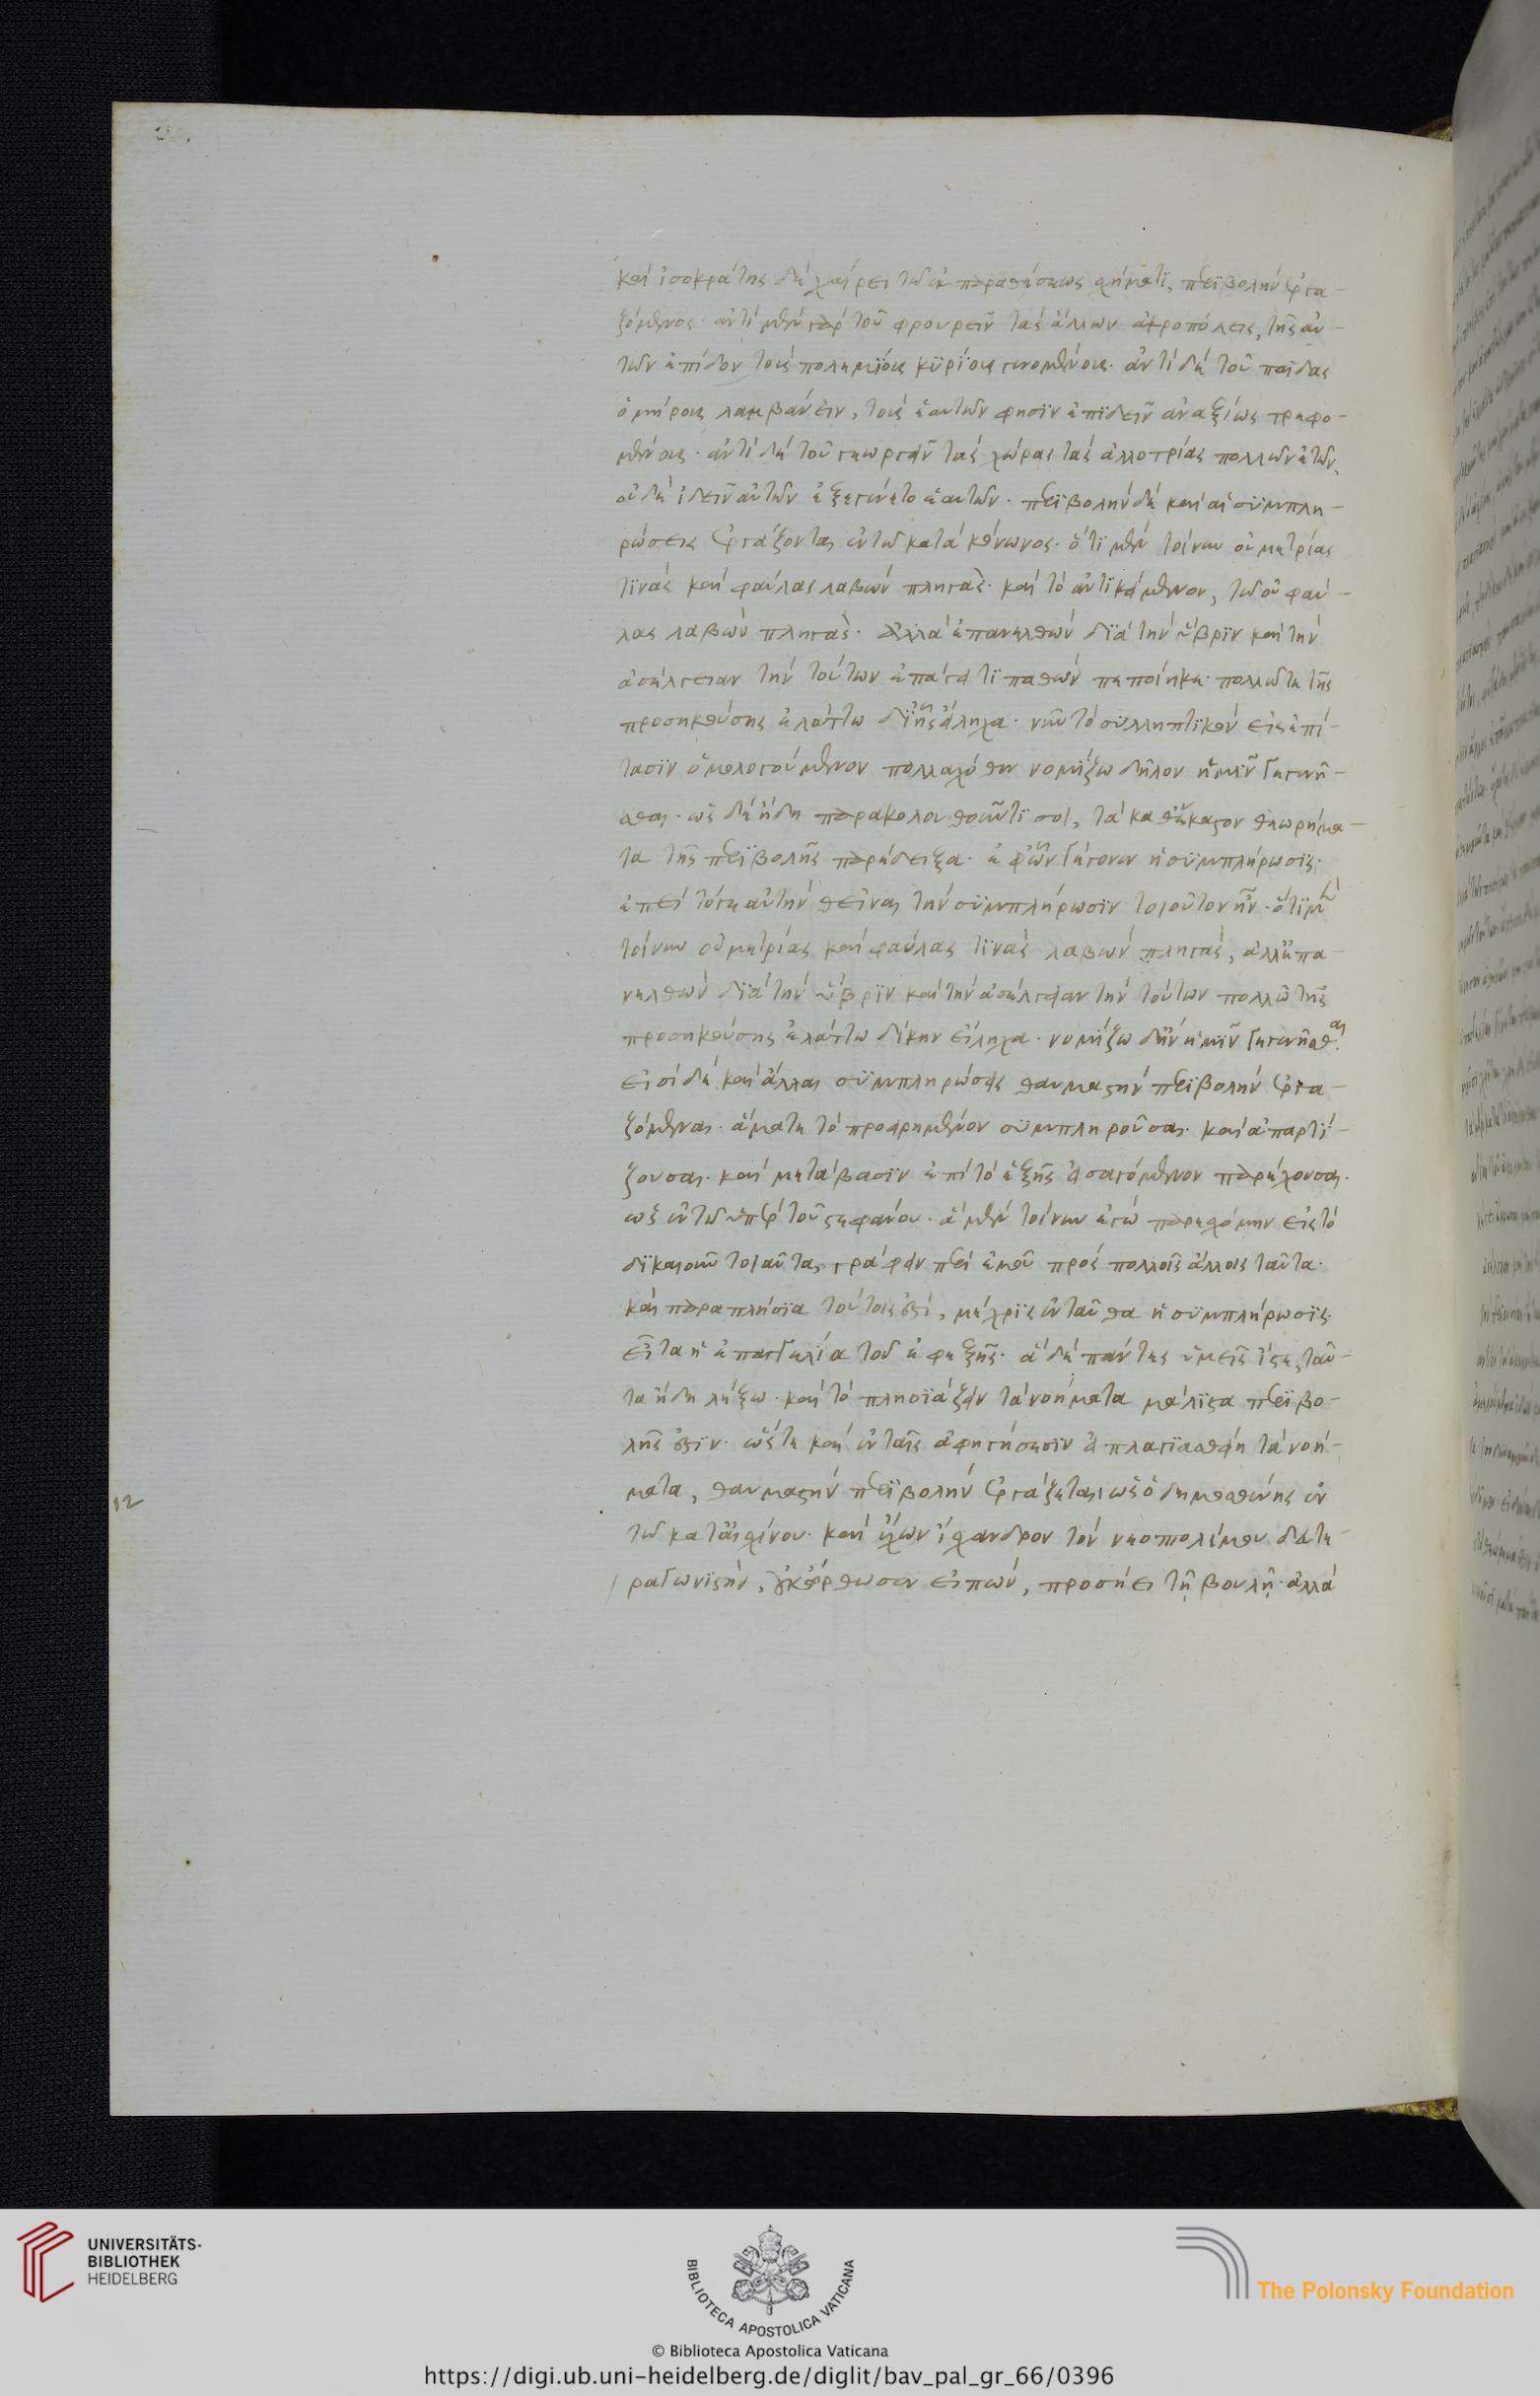 καὶ ἰσοκράτης δὲ χαίρει τῶ ἐκ παραθέσεως σχήματι, περιβολὴν ἐργα-
ζόμενος· ἀντὶ μὲν γὰρ τοῦ φρουρεῖν τὰς ἄλλων ἀκροπόλεις, τῆς αὑ-
τῶν ἐπίδον τοὺς πολεμίους κυρίους γινομένους· ἀντὶ δὲ τοῦ παῖδας
ὁμήρους λαμβάνειν, τοὺς ἑαυτῶν φησιν ἐπιδεῖν ἀναξίως τρεφο-
μένους· ἀντὶ δὲ τοῦ γεωργεῖν τὰς χώρας τὰς ἀλλοτρίας πολλῶν ἐτῶν,
οὐδὲ ἰδεῖν αὐτῶν ἐξεγένετο ἑαυτῶν· περιβολὴν δὲ καὶ αἱ συμπλη-
ρώσεις ἐργάζονται ἐν τῶ κατὰ κόνωνος· ὅτι μὲν τοίνυν οὐ μετρίας
τινὰς καὶ φαύλας λαβὼν πληγὰς· καὶ τὸ ἀντικείμενον, τῶ οὐ φαύ-
λας λαβὼν πληγὰς· ἀλλὰ ἐπανελθὼν διὰ τὴν ὕβριν καὶ τὴν
ἀσέλγειαν τὴν τούτων ἐπάγει τί παθὼν πεποίηκε· πολλῶ τε τῆς
προσηκούσης ἐλάττω δι' ἧς εἴληχα· νῦν τὸ συλληπτικὸν εἰς ἐπί-
τασιν ὁμολογούμενον πολλαχόθεν νομίζω δῆλον ἡμῖν γεγενῆ-
σθαι· ὡς δὲ ἤδη παρακολουθοῦντί σοι, τὰ καθέκαστον θεωρήμα-
τα τῆς περιβολῆς παρέδειξα· ἐφ' ὧν γέγονεν ἡ συμπλήρωσις·
ἐπεὶ τόγε αὐτὴν θεῖναι τὴν συμπλήρωσιν τοιοῦτον ἦν· ὅτι μὲν
τοίνυν οὐ μετρίας καὶ φαύλας τινὰς λαβὼν πληγὰς, ἀλλ' ἐπα-
νελθὼν διὰ τὴν ὕβριν καὶ τὴν ἀσέλγειαν τὴν τούτων πολλῶ τῆς
προσηκούσης ἐλάττω δίκην εἴληχα· νομίζω δῆλον ἡμῖν γεγενῆσθαι
εἰσὶ δὲ καὶ ἄλλαι συμπληρώσεις θαυμαστὴν περιβολὴν ἐργα-
ζόμεναι· ἅμα τε τὸ προειρημένον συμπληροῦσαι· καὶ ἀπαρτί-
ζουσαι· καὶ μετάβασιν ἐπὶ τὸ ἑξῆς εἰσαγόμενον παρέχουσαι·
ὡς ἐν τῶ ὑπὲρ τοῦ στεφάνου· ἃ μὲν τοίνυν ἐγὼ παρειχόμην εἰς τὸ
δίκαιον τοιαῦτα, γράφειν περὶ ἐμοῦ πρὸς πολλοῖς ἄλλοις ταῦτα·
καὶ παραπλήσια τούτοις ἐστὶ, μέχρις ἐνταῦθα ἡ συμπλήρωσις·
εἶτα ἡ ἐπαγγελία τοῦ ἐφεξῆς· ἃ δὲ πάντες ὑμεῖς ἴστε, ταῦ-
τα ἤδη λέξω· καὶ τὸ πλησιάζειν τὰ νοήματα μάλιστα περιβο-
λῆς ἐστιν· ὥστε καὶ ἐν ταῖς ἀφηγήσεσιν εἰ πλαγιασθείη τὰ νοή-
ματα, θαυμαστὴν περιβολὴν ἐργάζεται, ὡς ὁ δημοσθένης ἐν
τῶ κατ' αἰσχίνου· καὶ ἔχων ἴσχανδρον τὸν νεοπτολέμου δευτε-
ραγωνιστὴν, εἰπὼν, προσήει τῇ βουλῇ· ἀλλὰ
12
UNIVERSITÄTS-
BIBLIOTHEK
HEIDELBERG
BIBLIOTECA APOSTOLICA VATICANA
The Polonsky Foundation
© Biblioteca Apostolica Vaticana
https://digi.ub.uni-heidelberg.de/diglit/bav_pal_gr_66/0396